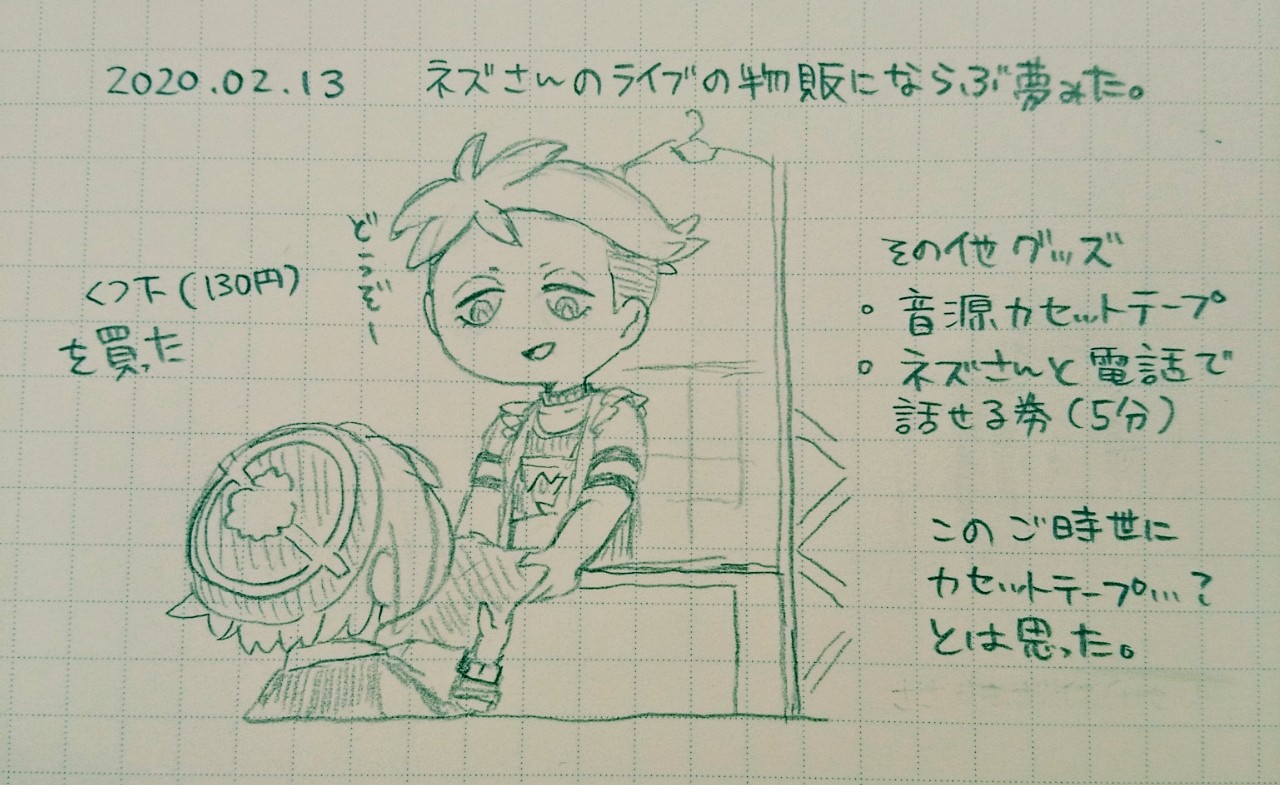 2020.02.13 ネズさんのライブの物販にならぶ夢みた。
どうぞー
くつ下(130円)
を買った
その他グッズ
・音源カセットテープ
・ネズさんと電話で
話せる券(5分)
このご時世に
カセットテープ…?
とは思った。